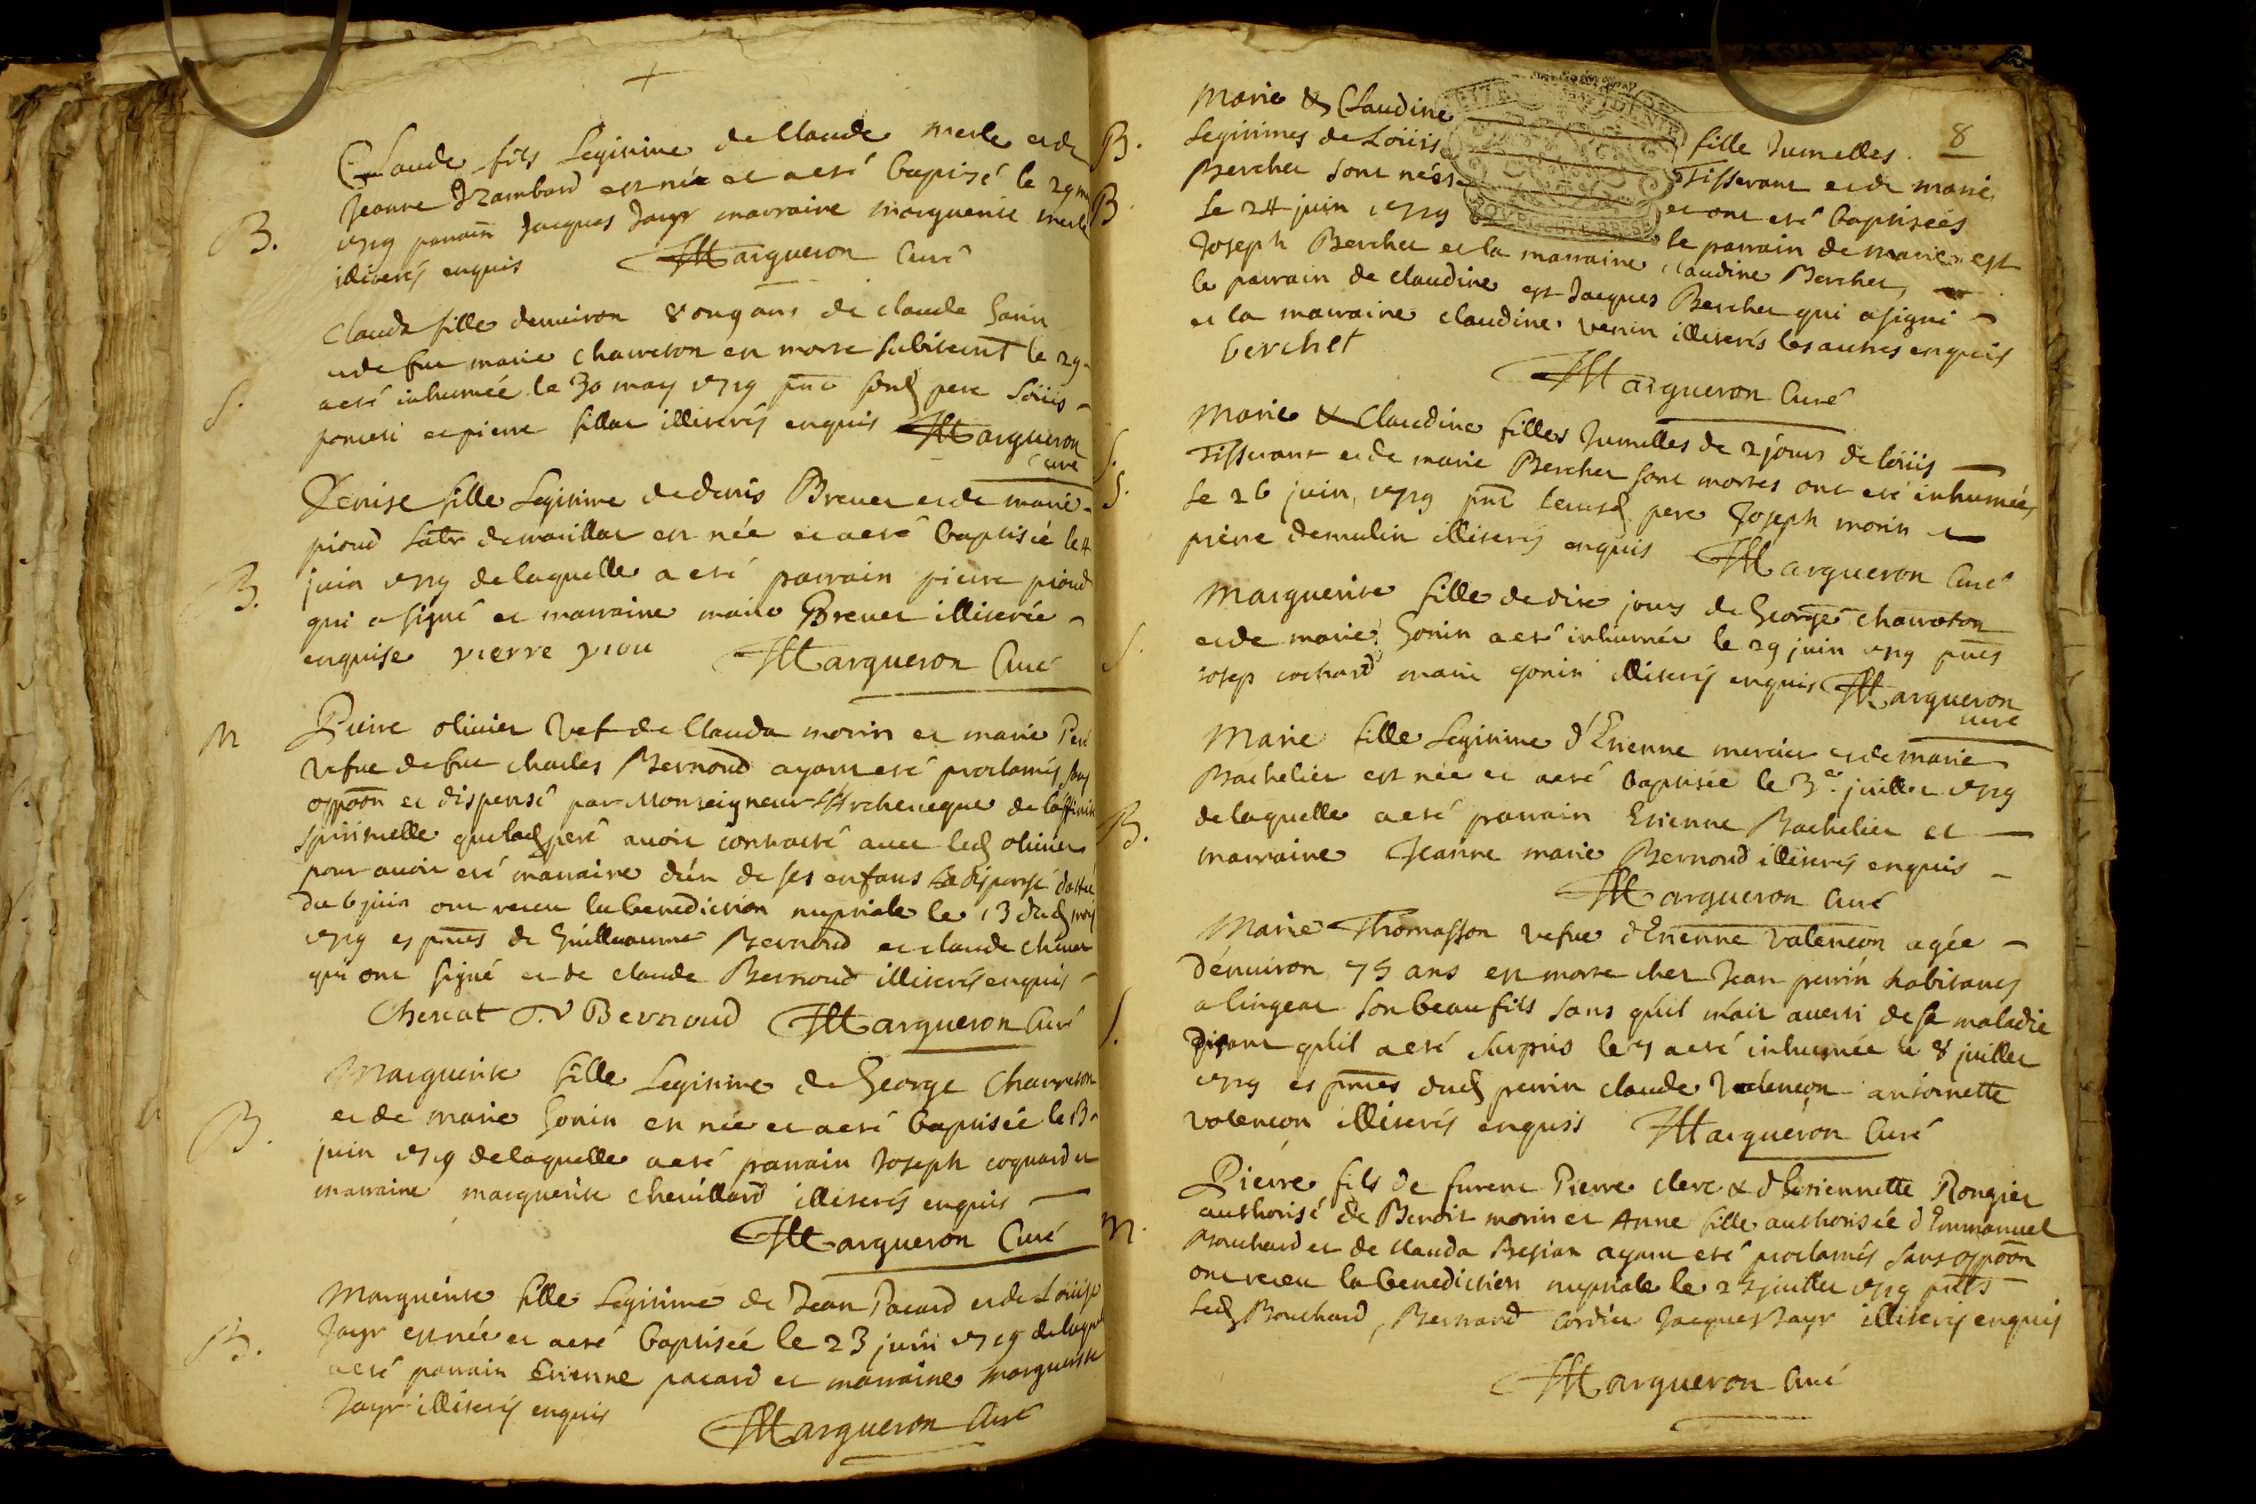 +
Claude fils Legitime de Claude merle et de
B. Jeanne est né et a eté baptisé le 29 may
1719 parrain Jacques Jayr marraine marguerite merle
illiterés enquis Margueron Curé
Claude fille denviron 8 ou 9 ans de claude Gonin
et de fue marie chavreton est morte subitemt le 29
S. a eté inhumée le 30 may 1719 pnt sond pere Loüis
ponceti et pierre fillat illiterés enquis Margueron
Curé
Denise fille Legitime de denis Brevet et de marie
pioud est née et a eté baptisée le 4
B. juin 1719 de laquelle a eté parrain pierre pioud
qui a signé et marraine marie Brevet illiterée
enquise pierre piou Margueron Curé
M Pierre olivier Vef de Clauda morin et marie Peré
Vefue de fue charles Bernoud ayant eté proclamés sans
oppoõn et dispensé par Monseigneur L'Archeveque de laffinité
spirituelle que lad peré avoit contracté avec led olivier
pour avoir eté marraine d'un de ses enfans la dispense dattée
du 6 juin ont receu la benediction nuptiale le 13 dud mois
1719 es pñces de Guillaume Bernoud et claude chenat
qui ont signé et de claude Bernoud illiterés enquis
Chenat Bernoud Margueron Curé
Marguerite fille Legitime de George Chavreton
et de marie Gonin est née et a eté baptisée le 13
B. juin 1719 de laquelle a eté parrain Joseph coquard et
marraine marguerite chevillard illiterés enquis
Margueron Curé
Marguerite fille Legitime de Jean Pacard et de Loüise
B. Jayr est née et a eté baptisée le 23 juin 1719 de laquel
a eté parrain Etienne pacard et marraine marguerite
Jayr illiterés enquis Margueron Curé
8
Marie & Claudine fille Jumelles
B. Legitimes de Loüis Tisserant et de marie
B Berchet sont nées et ont eté baptisées
Le 24 juin 1719 le parrain de marie est
Joseph Berchet et la marraine claudine Berchet,
le parrain de claudine est Jacques Berchet qui a signé
et la marraine claudine venin illiterés les autres enquis
berchet
Margueron Curé
Marie & Claudine filles Jumelles de 2 jours de loüis
S. Tisserant et de marie Berchet sont mortes ont eté inhumées
S. Le 26 juin, 1719 pnt leursd pere Joseph morin et
pierre demulin illiterés enquis Margueron Curé
Marguerite fille de dix jours de George chavroton
S. et de marie Gonin a eté inhumée le 29 juin 1719 pñces
iosep cochard marie gonin illiterés enquis Margueron
curé
Marie fille Legitime d'Etienne mercier et de marie
Bachelier est née et a eté baptisée le 3e. juillet 1719
B. de laquelle a eté parrain Etienne Bachelier et
marraine Jeanne marie Bernoud illiterés enquis
Margueron Curé
Marie Thomasson vefue d'Etienne valencon agée
d'environ 75 ans est morte chez Jean perrin habitant
a lingeat son beau fils sans qu'il m'ait averti de sa maladie
S. disant qu'il a eté surpris le 7 a eté inhumée le 8 juillet
1719 es pñces dud perrin claude Valencon antoinette
valencon illiterés enquis Margueron Curé
Pierre fils de furent Pierre clerc & d'Etiennette Rongier
M. authorisé de Benoit morin et Anne fille authorisée d'Emmanuel
Bouchard et de Clauda Bessian ayant eté proclamés sans oppoõn
ont receu la benediction nuptiale le 25 juillet 1719 pnts
Led Bouchard, Bernard Cordier Jacques Jayr illiterés enquis
Margueron Curé